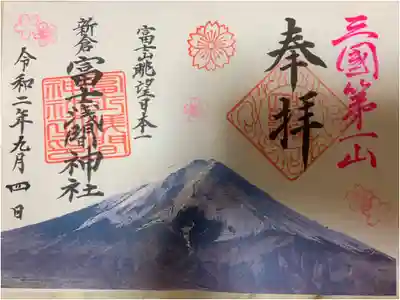 三國第一山
奉拝
富士山眺望日本一
新倉富士浅間神社
令和二年九月四日